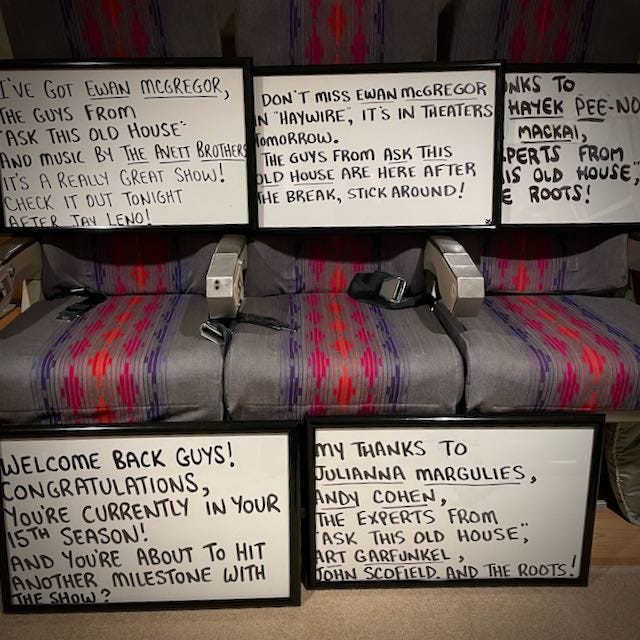 I'VE GOT EWAN MCGREGOR,
THE GUYS FROM
"ASK THIS OLD HOUSE"
AND MUSIC BY THE AVETT BROTHERS
IT'S A REALLY GREAT SHOW!
CHECK IT OUT TONIGHT
AFTER JAY LENO!
DON'T MISS EWAN McGREGOR
IN "HAYWIRE", IT'S IN THEATERS
TOMORROW.
THE GUYS FROM ASK THIS
OLD HOUSE ARE HERE AFTER
THE BREAK, STICK AROUND!
NKS TO
HAYEK PEE-NO
MACKAI,
PERTS FROM
IS OLD HOUSE,
E ROOTS!
WELCOME BACK GUYS!
CONGRATULATIONS,
YOU'RE CURRENTLY IN YOUR
15TH SEASON!
AND YOU'RE ABOUT TO HIT
ANOTHER MILESTONE WITH
THE SHOW?
MY THANKS TO
JULIANNA MARGULIES,
ANDY COHEN,
THE EXPERTS FROM
"ASK THIS OLD HOUSE",
ART GARFUNKEL,
JOHN SCOFIELD. AND THE ROOTS!